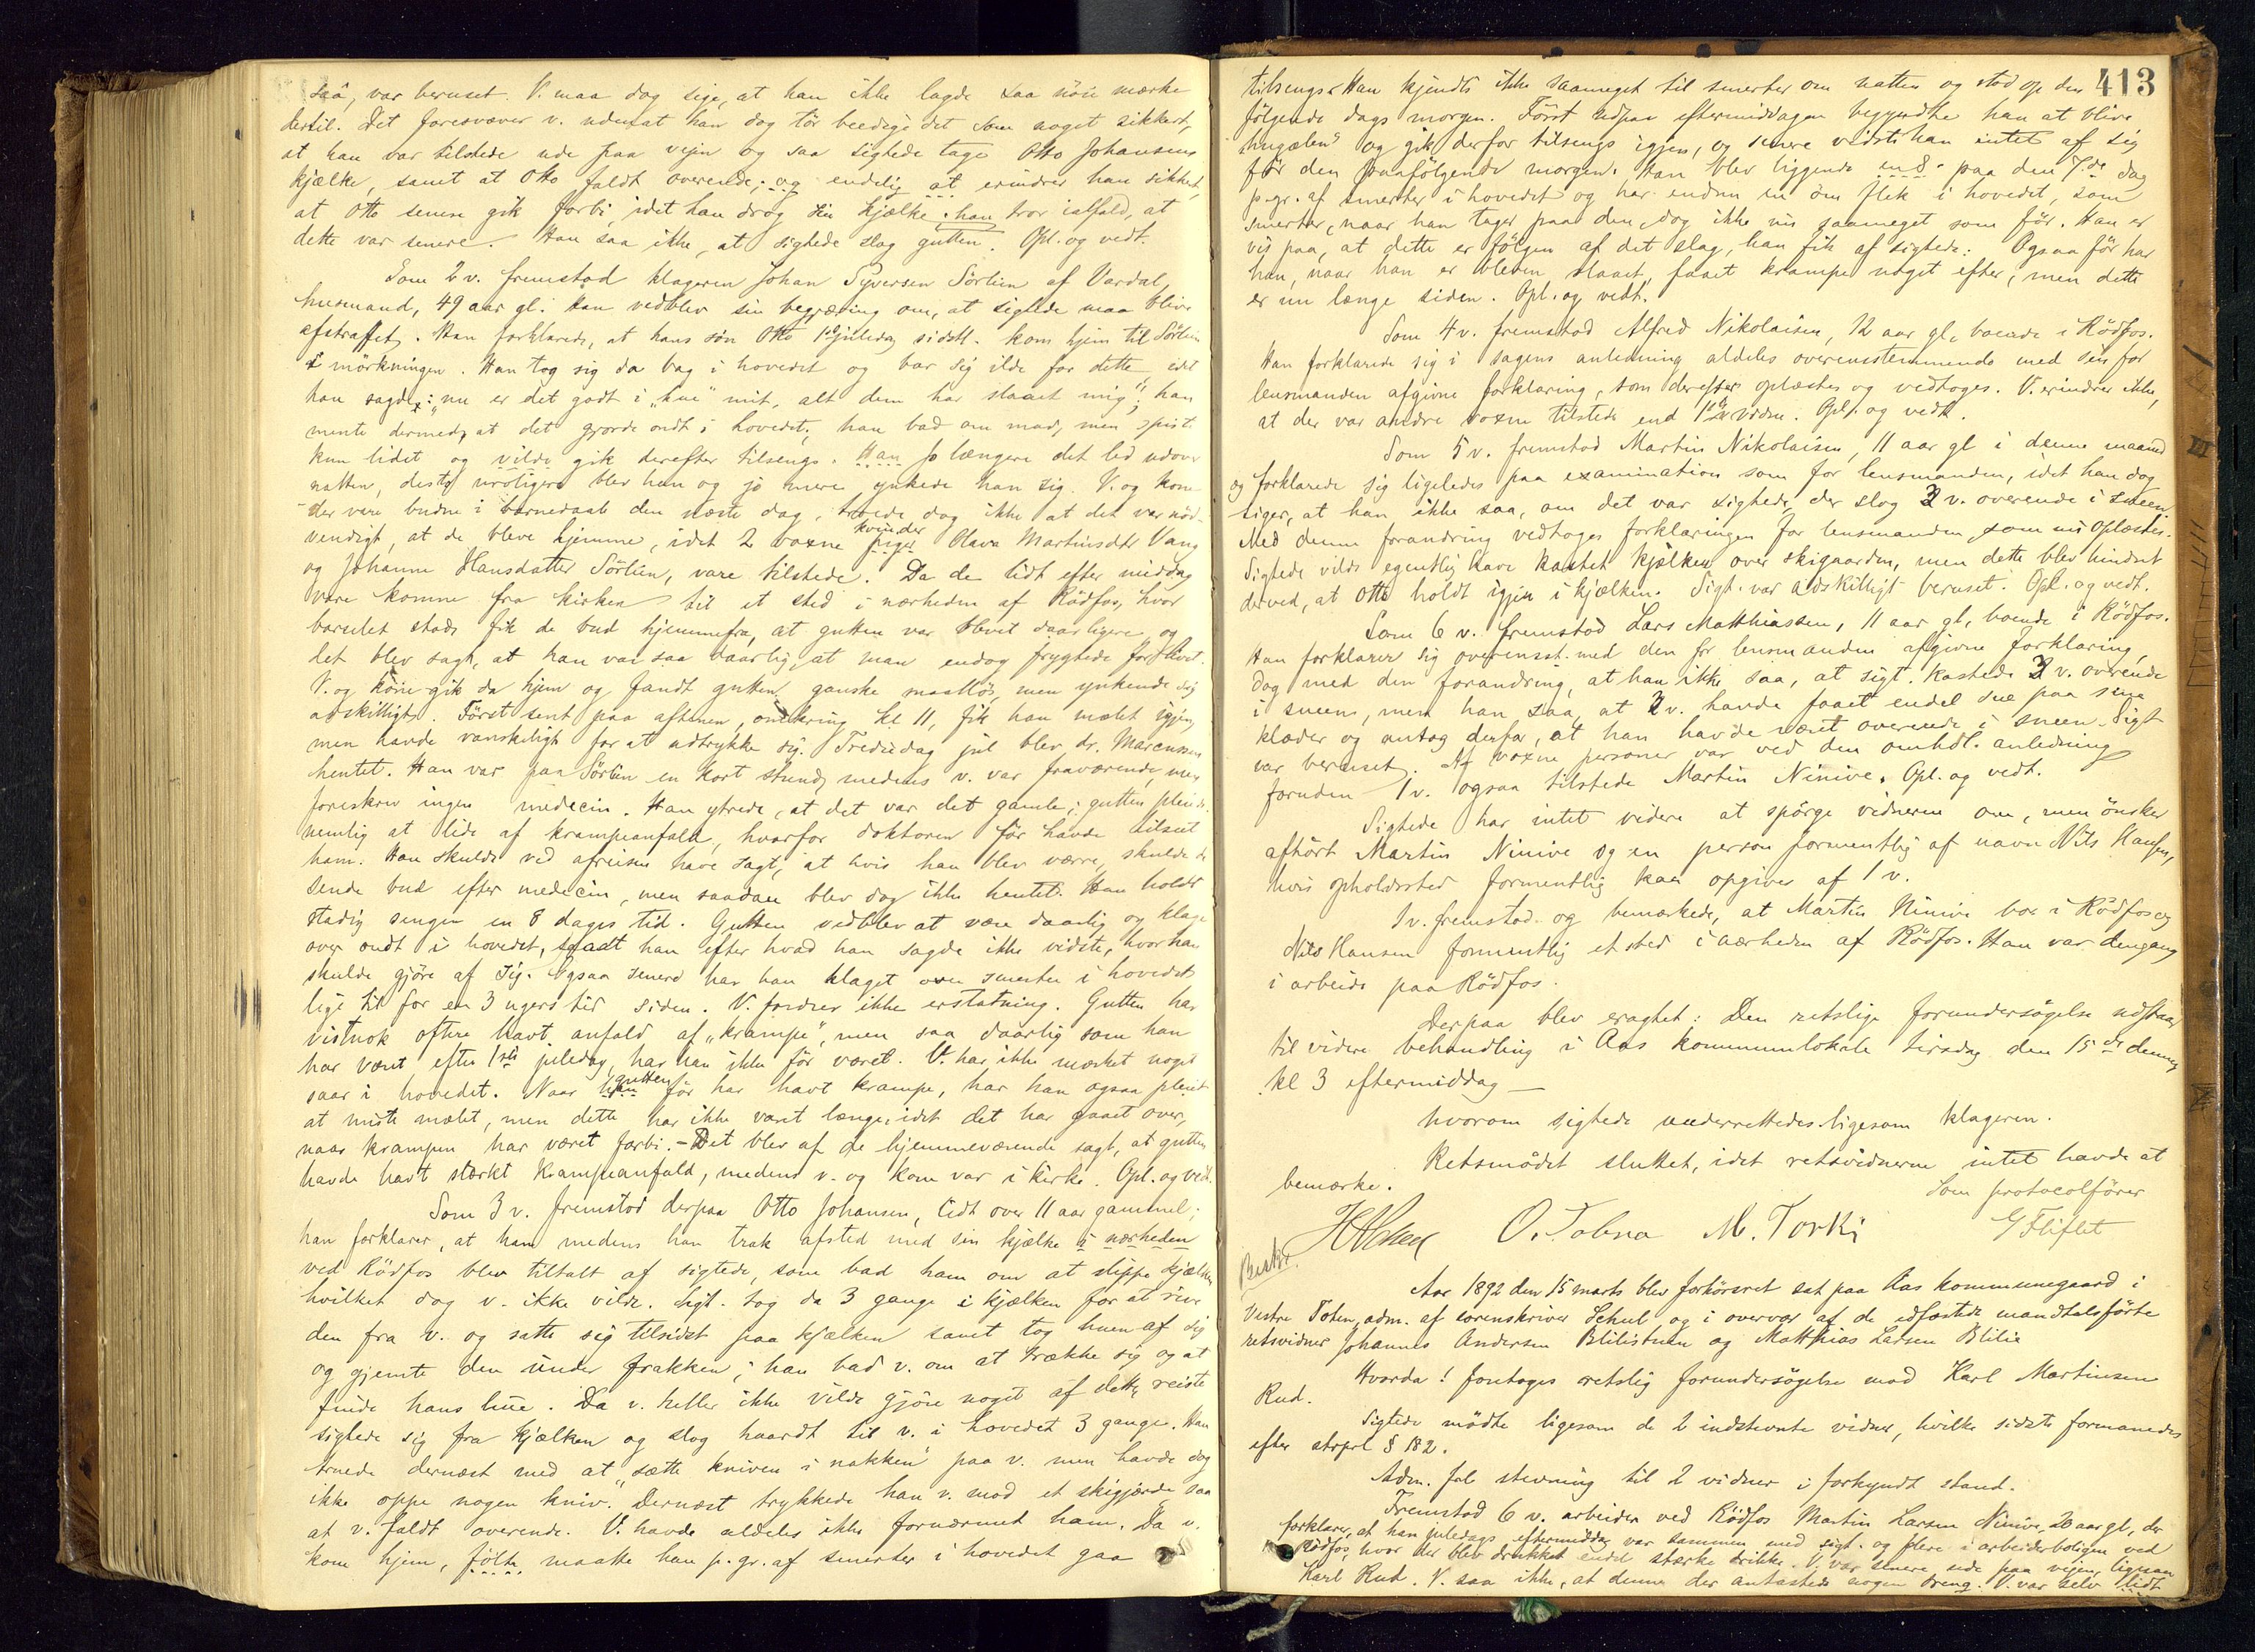 saa, var beruset. V. maa dog sige, at han ikke lagde saa nöie mærke
dertil. Det foresvæver v. uden at han dog tör beedige det som noget sikkert,
at han var tilstede ude paa vejen og saa sigtede tage Otto Johansens
kjælke, samt at Otto faldt overende; og endelig at erindrer han sikkert,
at Otto senere gik forbi, idet han drog sin kjælke; han tror ialfald, at
dette var senere. Han saa ikke, at sigtede slog gutten. Opl. og vedt.
Som 2 v. fremstod klageren Johan Syversen Sörlien af Vardal,
husmand, 49 aar gl. Han vedblev sin begjæring om, at sigtede maa blive
afstraffet. Han forklarede, at hans sön Otto 1ste juledag sidstl. kom hjem til Sörlien
i mörkningen. Han tog sig da bag i hovedet og bar sig ilde for dette, idet
han sagde: "nu er det godt i "hue" mit, alt dem har slaaet mig"; han
mente dermed, at det gjorde ondt i hovedet; han bad om mad, men spiste
kun lidet og vilde gik derefter tilsengs. Han Jo længere det led udover
natten, desto uroligere blev han og jo mere ynkede han sig. V. og kone
der vare budne i barnedaab den næste dag, troede dog ikke at det var nöd-
vendigt, at de bleve hjemme, idet 2 voxne piger kvinder Olava Martinsdtr Vang
og Johanne Hansdatter Sörlien, vare tilstede. Da de lidt efter middag
vare komne fra kirken til et sted i nærheden af Rödfos, hvor
barselet stod, fik de bud hjemmefra, at gutten var blevet daarligere og
det blev sagt, at han var saa daarlig, at man endog frygtede for livet.
V. og kone gik da hjem og fandt gutten ganske maallös, men ynkende sig
adskilligt. Först sent paa aftenen, omkring kl 11, fik han mælet igjen,
men havde vanskeligt for at udtrykke sig. Tredie dag jul blev dr. Marcussen
hentet. Han var paa Sörlien en kort stund, medens v. var fraværende, men
foreskrev ingen medecin. Han ytrede, at det var det gamle; gutten pleiede
nemlig at lide af krampeanfald, hvorfor doktoren för havde tilseet
ham. Han skulde ved afreisen have sagt, at hvis han blev værre, skulde de
sende bud efter medecin, men saadan blev dog ikke hentet. Han holdt
stadig sengen en 8 dages tid. Gutten vedblev at være daarlig og klage
over ondt i hovedet, saa at han efter hvad han sagde ikke vidste, hvor han
skulde gjöre af sig. Ogsaa senere har han klaget over smerter i hovedet
lige til for en 3 ugers tid siden. V. fordrer ikke erstatning. Gutten har
vistnok oftere havt anfald af "krampe", men saa daarlig som han
har været efter 1ste juledag, har han ikke för været. V. har ikke mærket noget
saar i hovedet. Naar han gutten för har havt krampe, har han ogsaa pleiet
at miste mælet, men dette har ikke varet længe, idet det har gaaet over,
naar krampen har været forbi. – Det blev af de hjemmeværende sagt, at gutten
havde havt stærkt krampeanfald, medens v. og kone var i kirke. Opl. og vedt.
Som 3 v. fremstod derpaa Otto Johansen, lidt over 11 aar gammel;
han forklarer, at han medens han trak afsted med sin kjælke i nærheden
ved Rödfos blev tiltalt af sigtede, som bad ham om at slippe kjælken,
hvilket dog v. ikke vilde. Sigt. tog da 3 gange i kjælken for at rive
den fra v. og satte sig tilsidst paa kjælken samt tog huen af sig
og gjemte den under frakken; han bad v. om at trække sig og at
finde hans hue. Da v. heller ikke vilde gjöre noget af dette, reiste
sigtede sig fra kjælken og slog haardt til v. i hovedet 3 gange. Han
truede dernæst med at "sætte kniven i nakken" paa v. men havde dog
ikke oppe nogen kniv. Dernæst trykkede han v. mod et skigjærde saa
at v. faldt overende. V. havde aldeles ikke fornærmet ham. Da v.
kom hjem, fölte maatte han p. gr. af smerter i hovedet gaa
413
tilsengs. Han kjendte ikke saameget til smerter om natten og stod op den
fölgende dags morgen. Först udpaa eftermiddagen begyndte han at blive
"hugælen" og gik derfor tilsengs igjen, og senere vidste han intet af sig
för den paafölgende morgen. Han blev liggende en 8 paa den 7de dag
p. gr. af smerter i hovedet og har endnu en öm flek i hovedet, som
smerter, naar han tager paa den, dog ikke nu saameget som för. Han er
vis paa, at dette er fölgen af det slag, han fik af sigtede. Ogsaa för har
han, naar han er bleven slaaet, faaet krampe noget efter, men dette
er nu længe siden. Opl. og vedt.
Som 4 v. fremstod Alfred Nikolaisen, 12 aar gl, boende i Rödfos.
Han forklarede sig i sagens anledning aldeles overensstemmende med sin for
lensmanden afgivne forklaring, som derefter oplæstes og vedtoges. V. erindrer ikke,
at der var andre voxne tilstede end 1ste vidne. Opl. og vedt.
Som 5 v. fremstod Martin Nikolaisen, 11 aar gl i denne maaned
og forklarede sig ligeledes paa examination som for lensmanden, idet han dog
siger, at han ikke saa, om det var sigtede, der slog 3 v. overende i sneen.
Med denne forandring vedtoges forklaringen for lensmanden, som nu oplæstes.
Sigtede vilde egentlig have kastet kjælken over skigaarden, men dette blev hindret
derved, at Otto holdt igjen i kjælken. Sigt. var adskilligt beruset. Opl. og vedt.
Som 6 v. fremstod Lars Matthiassen, 11 aar gl, boende i Rödfos.
Han forklarer sig overensst. med den for lensmanden afgivne forklaring,
dog med den forandring, at han ikke saa, at sigt. kastede 3 v. overende
i sneen, men han saa, at 3 v. havde faaet endel sne paa sine
klæder og antog derfor, at han havde været overende i sneen. Sigt
var beruset. Af voxne personer var ved den omhdl. anledning
foruden 1 v. ogsaa tilstede Martin Ninive. Opl. og vedt.
Sigtede har intet videre at spörge vidnerne om, men önsker
afhört Martin Ninive og en person formentlig af navn Nils Hansen,
hvis opholdssted formentlig kan opgives af 1 v.
1 v. fremstod og bemærkede, at Martin Ninive bor i Rödfos og
Nils Hansen formentlig etsted i nærheden af Rödfos. Han var dengang
i arbeide paa Rödfos.
Derpaa blev eragtet: Den retslige forundersögelse udstaar
til videre behandling i Aas kommunelokale tirsdag den 15de dennes
kl 3 eftermiddag —
hvorom sigtede underrettedes ligesom klageren.
Retsmödet sluttet, idet retsvidnerne intet havde at
bemærke.
Som protocolförer
O. Tobna M. Torki G Fliflet
Beskr.
Aar 1892 den 15 marts blev forhörsret sat paa Aas kommunegaard i
Vestre Toten, adm. af sorenskriver Schul og i overvær af de edfæstede mandtalsförte
retsvidner Johannes Andersen Blilistuen og Matthias Larsen Blilie
Hvorda! foretages retslig forundersögelse mod Karl Martinsen
Rud.
Sigtede mödte ligesom de 2 indstevnte vidner, hvilke sidste formanedes
efter strprl § 182.
Adm. fol stevning til 2 vidner i forkyndt stand.
Fremstod 6 v. arbeider ved Rödfos Martin Larsen Ninive, 20 aar gl, der
forklarer, at han juledags eftermiddag var sammen med sigt. og flere i arbeiderboligen ved
Rödfos, hvor der blev drukket endel stærke drikke. V. var senere ude paa vejen, ligesaa
Karl Rud. V. saa ikke, at denne der antastede nogen dreng. V. var selv lidt